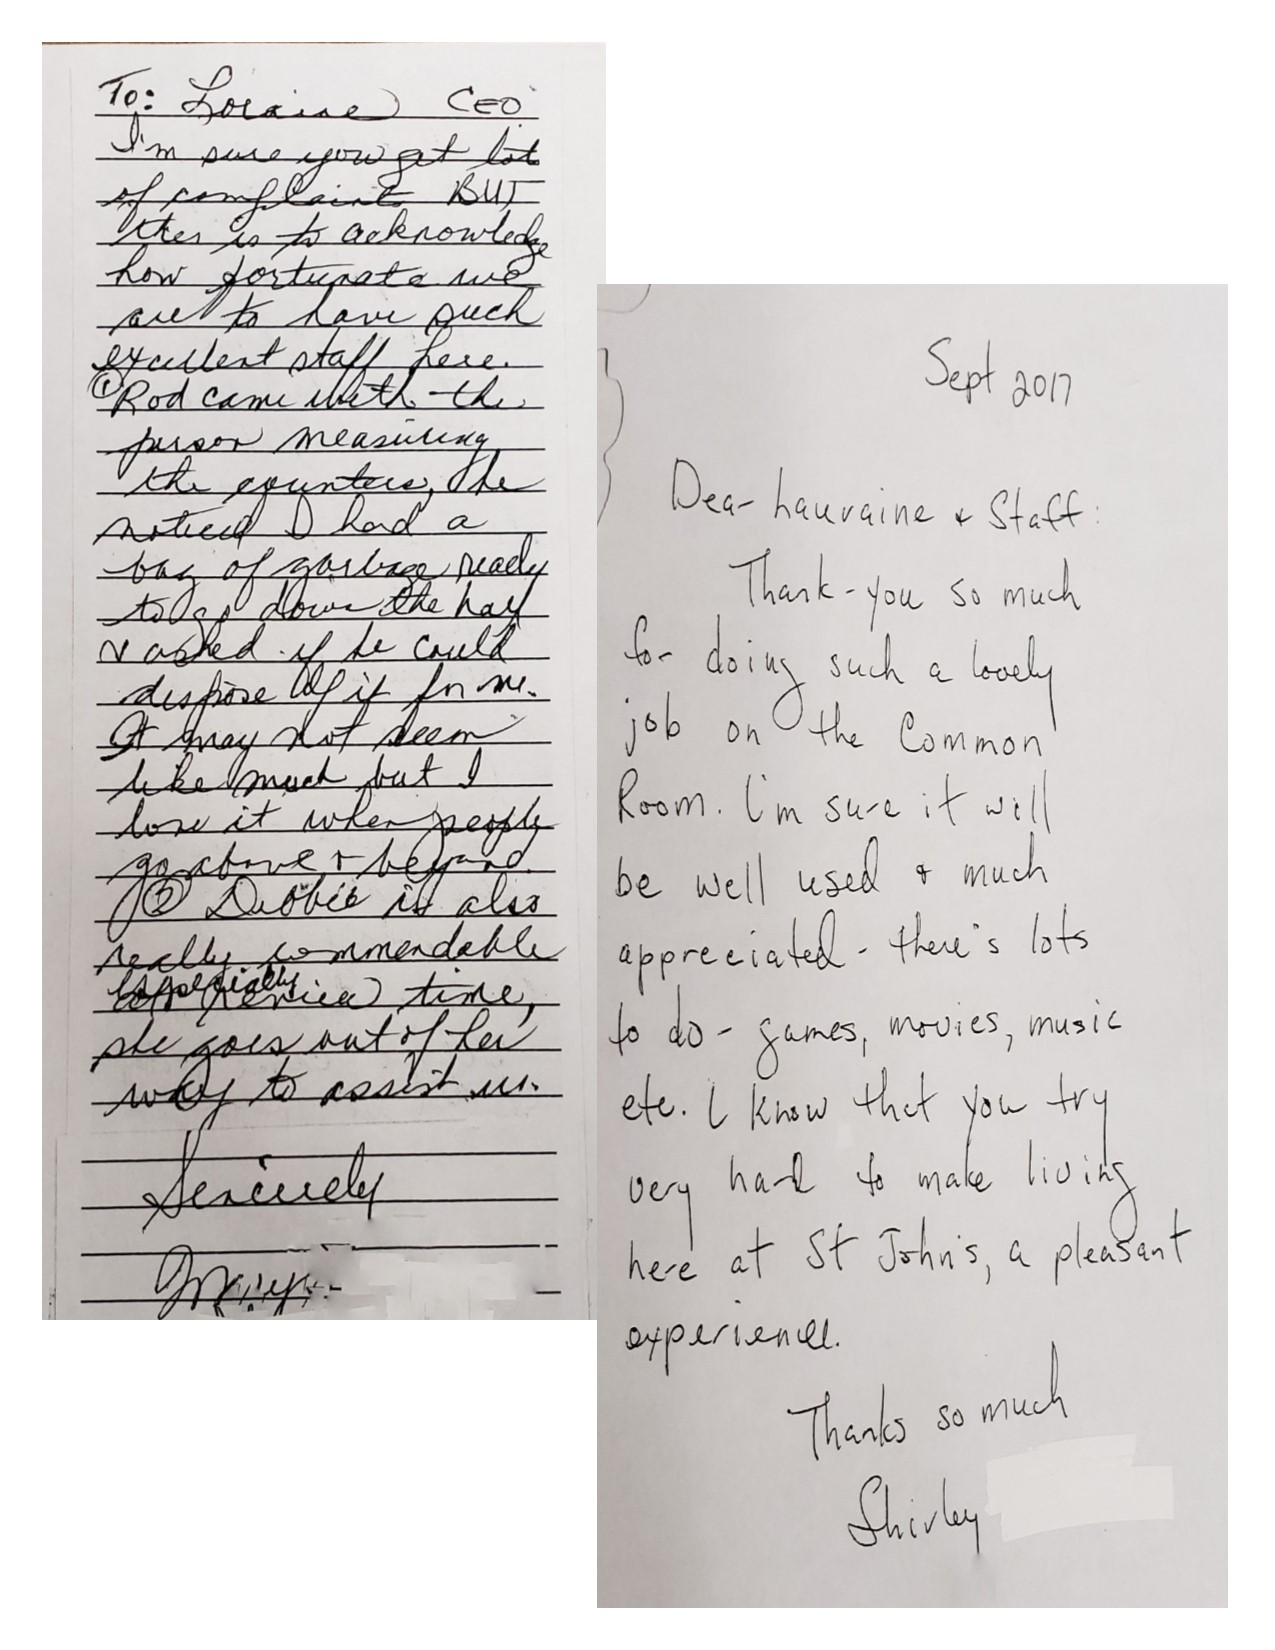 To: Loraine CEO
I'm sure you get lot
of complaints BUT
this is to acknowledge
how fortunate we
are to have such
excellent staff here.
① Rod came with the
person measuring
the counters, he
noticed I had a
bag of garbage ready
to go down the hall
& asked if he could
dispose of it for me.
It may not seem
like much but I
love it when people
go above & beyond.
② Debbie is also
really commendable
especially
time,
she goes out of her
way to assist us.
Sincerely
Sept 2017
Dear Lauraine & Staff:
Thank-you so much
for doing such a lovely
job on the Common
Room. I'm sure it will
be well used & much
appreciated - there's lots
to do - games, movies, music
etc. I know that you try
very hard to make living
here at St John's, a pleasant
experience.
Thanks so much
Shirley